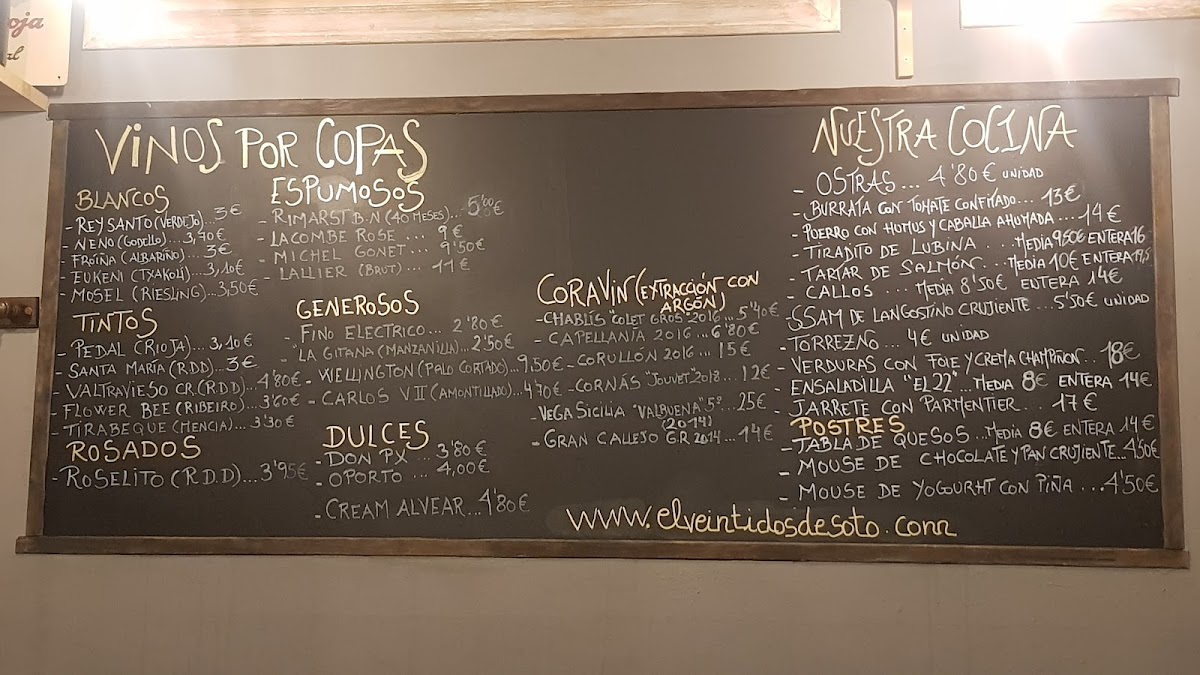 oja
al
VINOS POR COPAS
BLANCOS
- REY SANTO (VERDEJO)...3€
- NENO (GODELLO)...3,70€
- FROIÑA (ALBARIÑO)...3€
- EUKENI (TXAKOLÍ)...3,10€
- MOSEL (RIESLING)...3,50€
TINTOS
- PEDAL (RIOJA)...3,10€
- SANTA MARÍA (R.D.D)...3€
- VALTRAVIESO CR.(R.D.D)...4'80€
- FLOWER BEE (RIBEIRO)...3'60€
- TIRABEQUE (MENCIA)...3'30€
ROSADOS
- ROSELITO (R.D.D)...3'95€
ESPUMOSOS
- RIMARST B.N (40 MESES)...5'00€
- LACOMBE ROSE .... 9€
- MICHEL GONET ... 9'50€
- LALLIER (BRUT)... 11€
GENEROSOS
- FINO ELECTRICO... 2'80€
- "LA GITANA (MANZANILLA)...2'50€
- WELLINGTON (PALO CORTADO)...9,50€
- CARLOS VII (AMONTILLADO)...4,70€
DULCES
- DON PX ... 3'80€
- OPORTO ... 4,00€
- CREAM ALVEAR...4'80€
CORAVIN (EXTRACCIÓN CON
ARGÓN)
- CHABLÍS "COLET GROS" 2016...5'40€
- CAPELLANÍA 2016...6'80€
- CORULLÓN 2016...15€
- CORNÁS "JOUVET" 2018...12€
- VEGA SICILIA "VALBUENA" 5º...25€
(2014)
- GRAN CALLEJO G.R 2014...14€
www.elveintidosdesoto.com
NUESTRA COCINA
- OSTRAS... 4'80€ UNIDAD
- BURRATA CON TOMATE CONFITADO... 13€
- PUERRO CON HUMUS Y CABALLA AHUMADA ....14€
- TIRADITO DE LUBINA ... MEDIA 9'50€ ENTERA 16
- TARTAR DE SALMÓN... MEDIA 10€ ENTERA 19,5
- CALLOS ... MEDIA 8'50€ ENTERA 14€
- SSAM DE LANGOSTINO CRUJIENTE...5'50€ UNIDAD
- TORREZNO ... 4€ UNIDAD
- VERDURAS CON FOIE Y CREMA CHAMPIÑON... 18€
- ENSALADILLA "EL 22"...MEDIA 8€ ENTERA 14€
- JARRETE CON PARMENTIER... 17€
POSTRES
- TABLA DE QUESOS...MEDIA 8€ ENTERA 14€
- MOUSE DE CHOCOLATE Y PAN CRUJIENTE...4'50€
- MOUSE DE YOGOURHT CON PIÑA ...4'50€